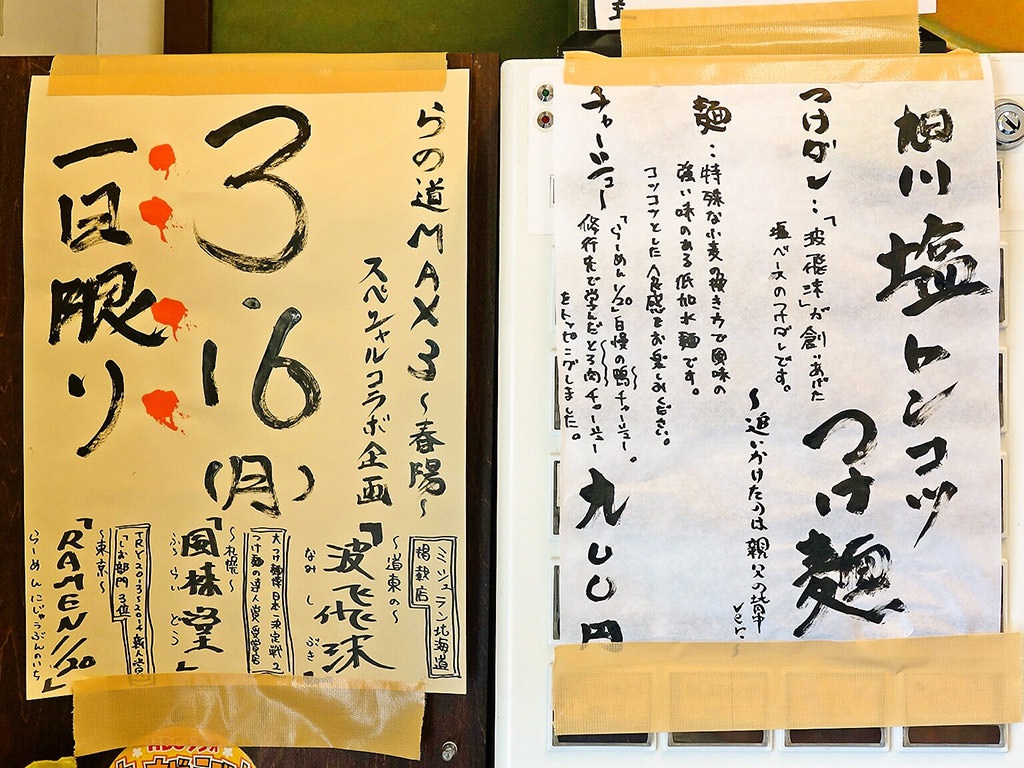 らの道MAX3～春陽～
スペシャルコラボ企画
3.16
(月)
一日限り
ミシュラン北海道
掲載店
～道東の～
「波飛沫」
なみしぶき
大つけ麺博日本一決定戦2
つけ麺の達人賞受賞店
～札幌～
「風棶堂」
ふうらいどう
TRY2013~2014新人賞
「しお部門」3位
～東京～
「RAMEN1/20」
らーめんにじゅうぶんのいち
旭川塩トンコツ
つけ麺
～追いかけたのは親父の背中
ver.
つけダレ:「波飛沫」が創りあげた
塩ベースのつけダレです。
麺:特殊な小麦の挽き方で風味の
強い味のある低加水麺です。
コツコツとした食感をお楽しみください。
チャーシュー
「らーめん1/20」自慢の鴨チャーシュー。
修行先で学んだとろ肉チャーシュー
をトッピングしました。
九〇〇円
HBCラジオ